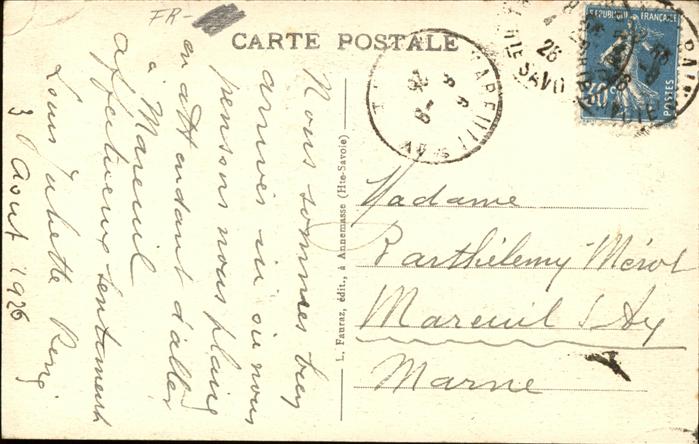 FR-
CARTE POSTALE
Nous sommes bien
arrivés ici où nous
pensons nous plaire
en attendant d'aller
à Mareuil
affectueux sentiments
Louis Juliette Remy
3 Août 1926
L. Fauraz, édit., à Annemasse (Hte-Savoie)
REPUBLIQUE FRANÇAISE
POSTES
MAREUIL
Madame
Barthélemy-Mérot
Mareuil s/ Ay
Marne